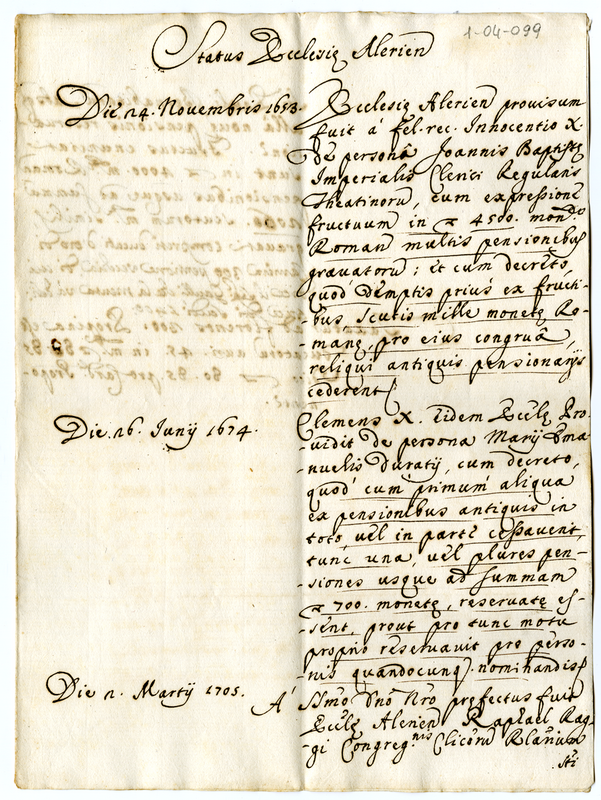 1-04-099
Status Ecclesię Alerien
Die 24. Novembris 1653.
Ecclesię Alerien provisum
fuit á fel. rec. Innocentio X.
de personâ Joannis Baptistę
Imperialis Clerici Regularis
Theatinorū, cum expressione
fructuum in 4500. monętę
Romanę multis pensionibus
gravatorū; et cum decreto,
quod demptis prius ex fructi-
-bus scutis mille monetę Ro-
-manę, pro eius congruâ,
reliqui antiquis pensionarijs
cederent
Die 26. Junij 1674.
Clemens X. eidem Ecclę Pro-
-vidit de persona Marij Ema
nuelis Duratij, cum decreto,
quod cum primum aliqua
ex pensionibus antiquis in
toto, vel in parte cessavent,
tunc una, vel plures pen-
-siones usque ad summam
700. monetę, reservatę es-
-sent, prout pro tunc motu
proprio reservavit pro perso-
-nis quandocunq. nominandis
Die 2. Martij 1705.
A' SSmo Dno Nro prefectus fuit
Ecclę Alerien Raphael Rag-
-gi Congreg.nis